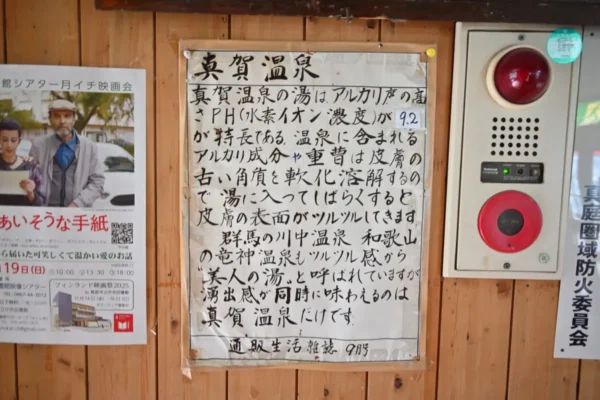 真賀温泉
真賀温泉の湯はアルカリ声の高
さPH(水素イオン濃度)が 9.2
が特長である。温泉に含まれる
アルカリ成分や重曹は皮膚の
古い角質を軟化溶解するの
で湯に入ってしばらくすると
皮膚の表面がツルツルしてきます。
群馬の川中温泉 和歌山
の竜神温泉もツルツル感から
“美人の湯〟と呼ばれていますが
湧出感が同時に味わえるのは
真賀温泉だけです。
通販生活 雑誌 9月号
館シアター月イチ映画会
あいそうな手紙
ら届いた可笑しくて温かい愛のお話
19日(日) ①10:00 ②13:30 ③18:00
フィンランド映画祭2025
真庭圏域防火委員会